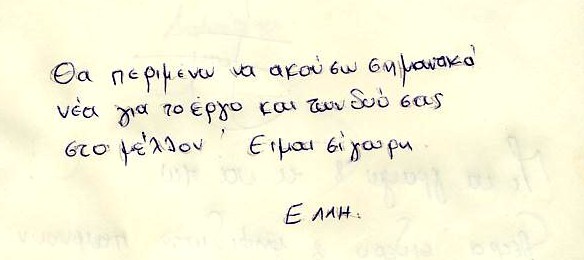 Θα περιμενω να ακούσω σημαντικά
νέα για το έργο και των δυό σας
στο μέλλον Ειμαι σίγουρη.
Ελλη.